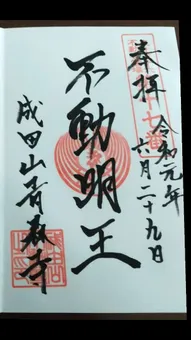 奉拝
令和元年
六月二十九日
不動明王
成田山青龍寺